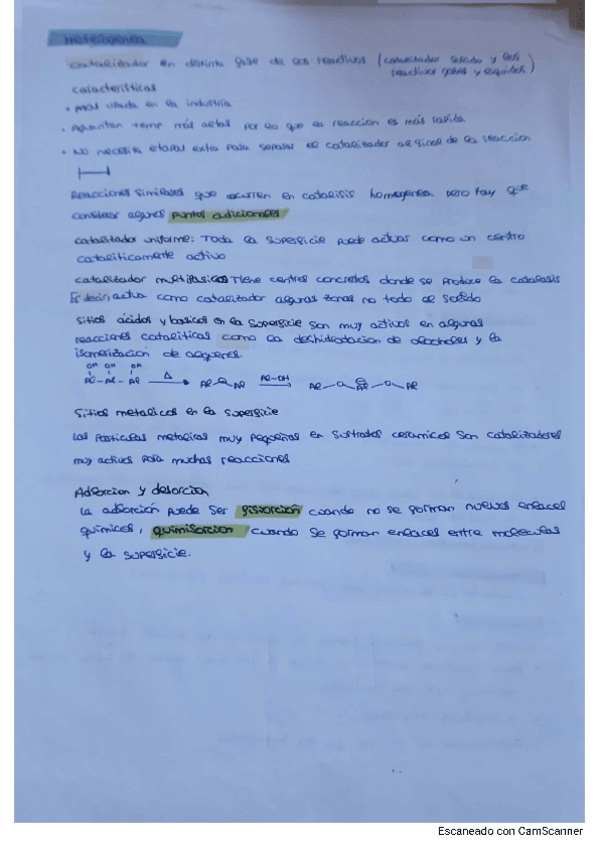 Heterogenea
catalizador en distinta fase de los reactivos (catalizador solido y los
reactivos gases y liquidos)
características
• más usada en la industria
• Aguantan temp más altas por lo que la reaccion es más rapida
• No necesita etapas extra para separar el catalizador al final de la reaccion
Reacciones similares que ocurren en catalisis homogenea pero hay que
considerar algunos puntos adicionales
catalizador uniforme: Toda la superficie puede actuar como un centro
cataliticamente activo
catalizador multifasicos Tiene centros concretos donde se produce la catalisis
Es decir, actua como catalizador algunas zonas no todo el solido
Sitios ácidos y basicos en la superficie son muy activos en algunas
reacciones cataliticas como la deshidratacion de alcoholes y la
isomerizacion de alquenos.
OH OH OH
Al-Al-Al Δ Al O Al Al-OH Al-O-Al-O-Al
Sitios metalicos en la superficie
Las particulas metalicas muy pequeñas en sustratos ceramicos son catalizadores
muy activos para muchas reacciones
Adsorcion y desorcion
La adsorción puede ser fisisorción cuando no se forman nuevos enlaces
químicos, quimisorcion cuando se forman enlaces entre moleculas
y la superficie.
Escaneado con CamScanner